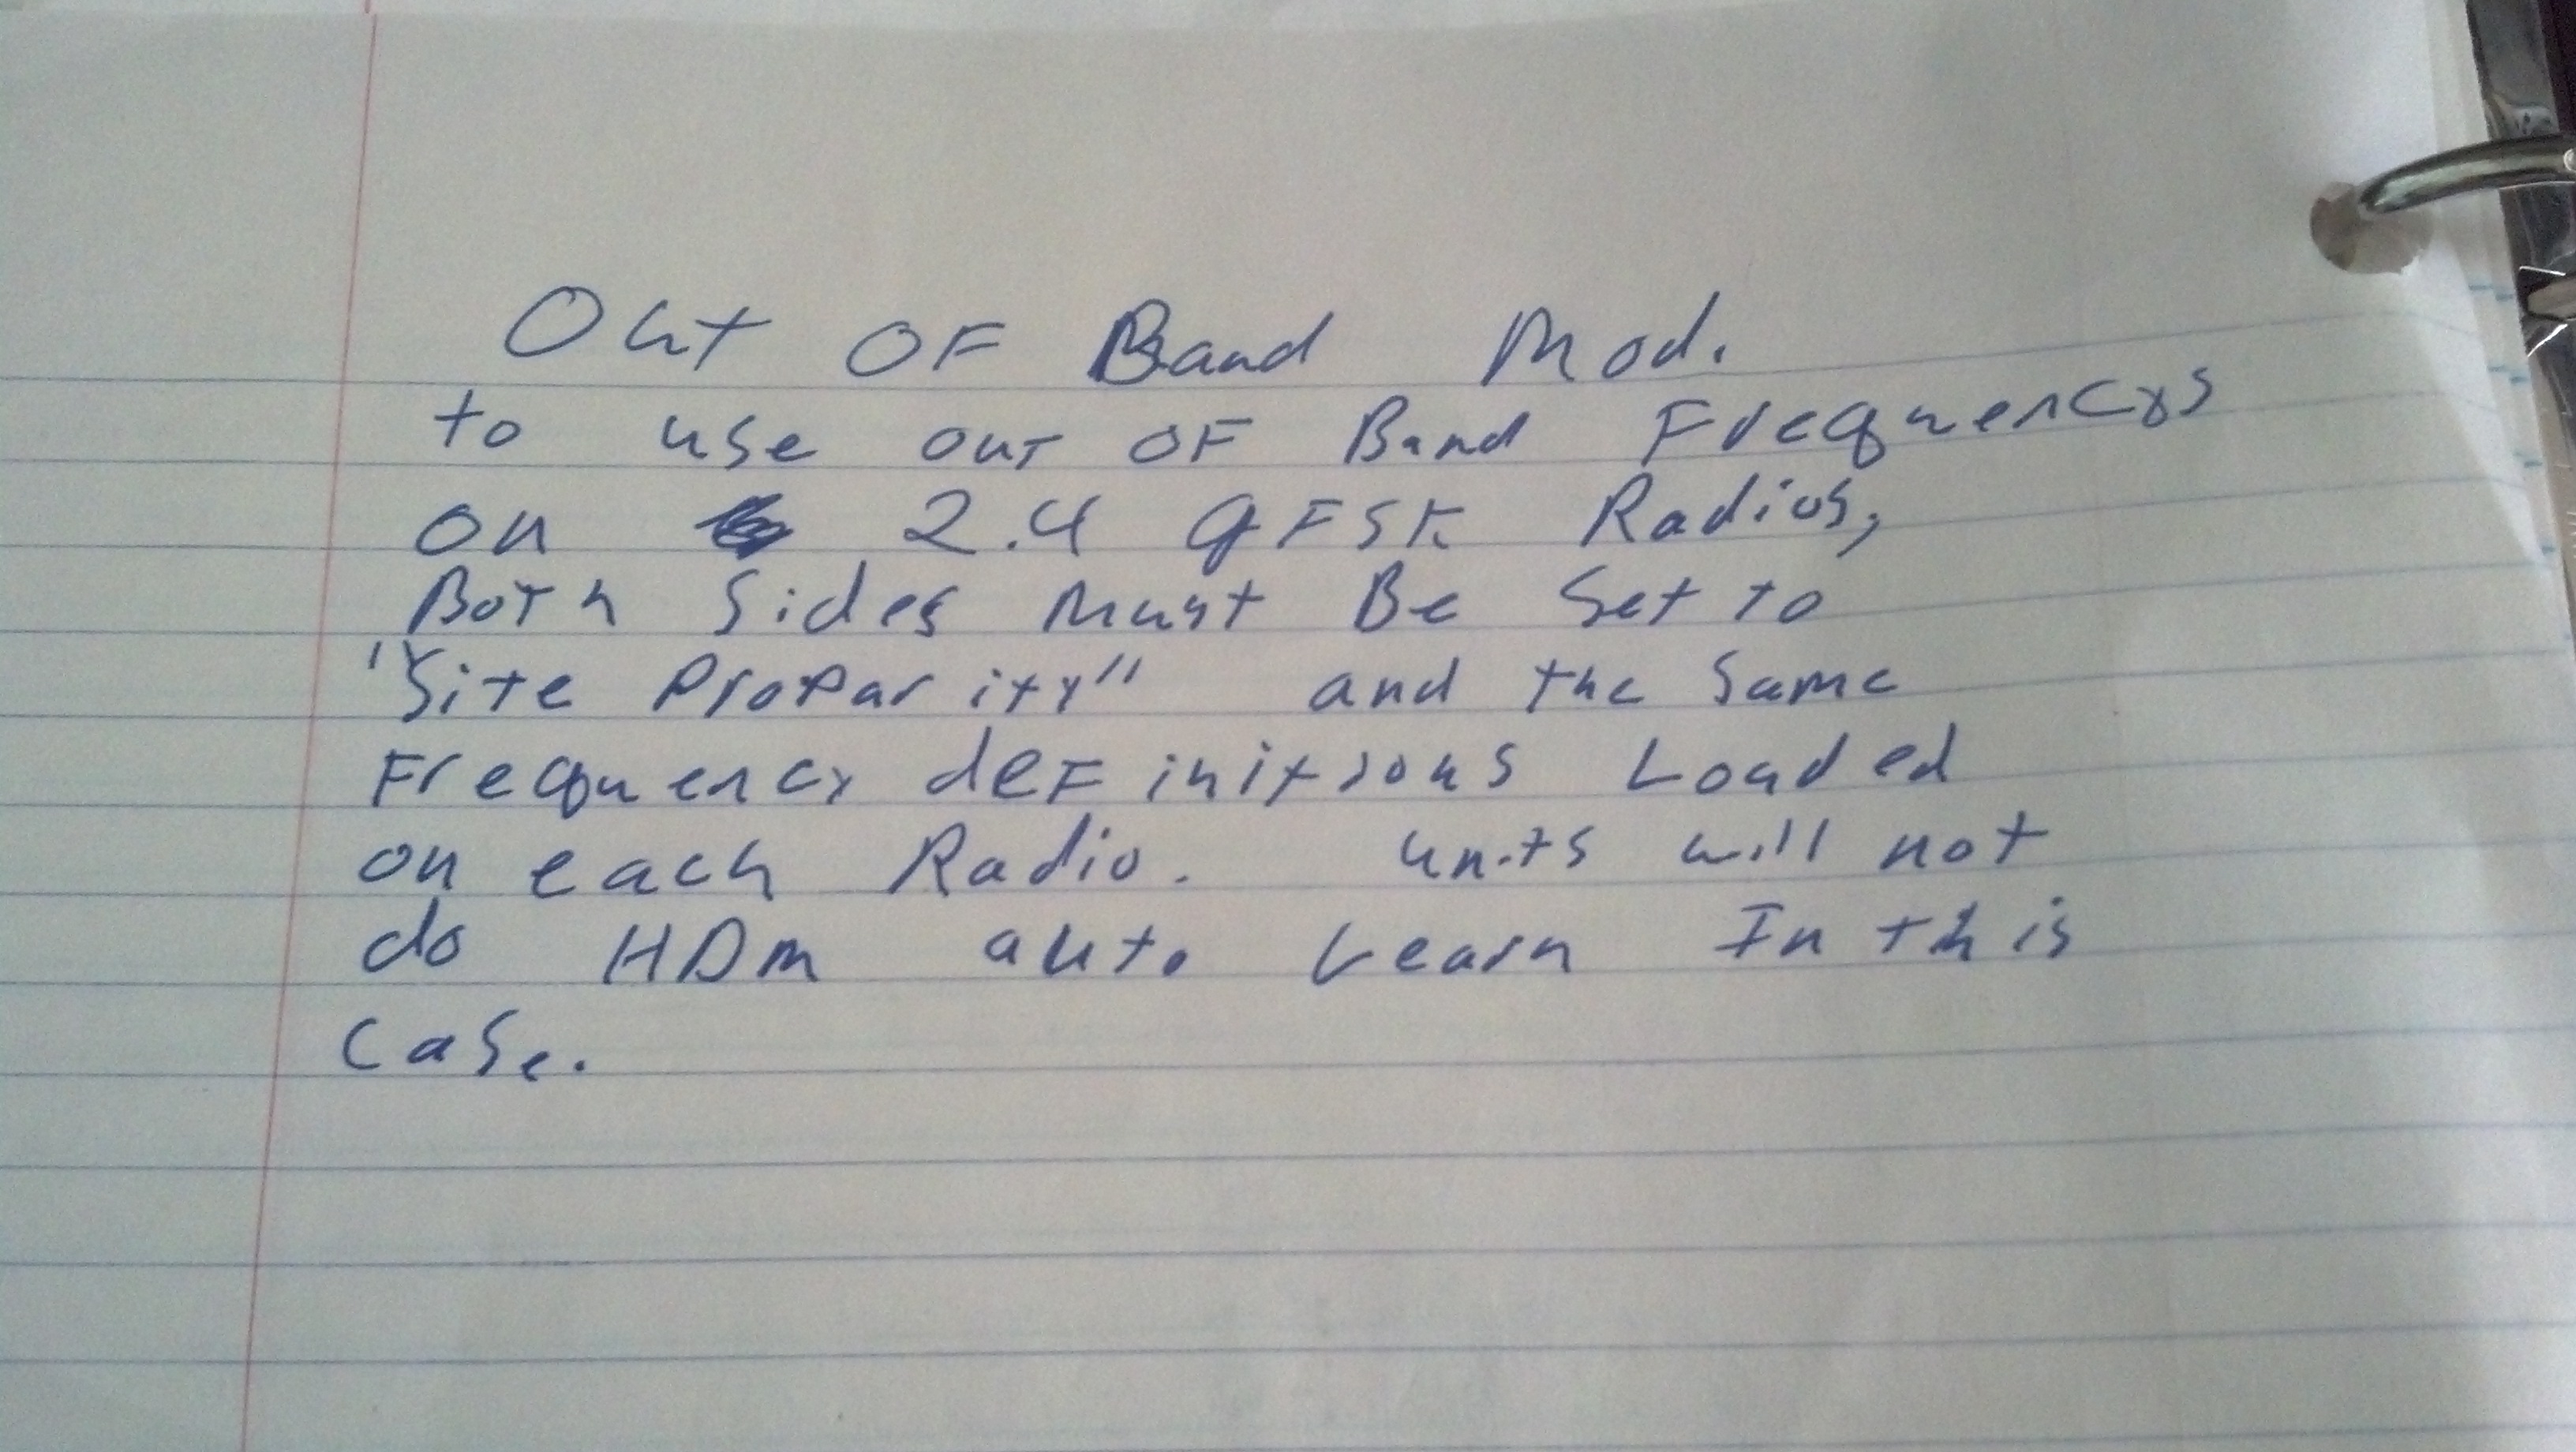 Out OF Band Mod.
to use out OF Band Frequencys
on 2.4 gFSK Radios,
Both Sides Must Be Set to
"Site Proparity" and the Same
Frequency deFinitions Loaded
on each Radio. units will not
do HDM auto Learn In this
Case.